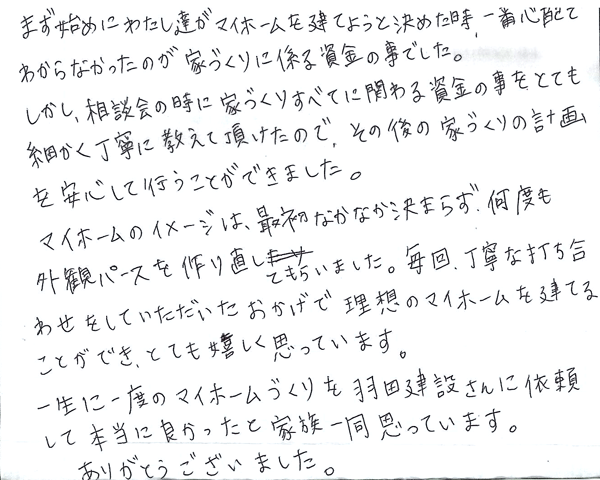 まず始めにわたし達がマイホームを建てようと決めた時、一番心配で
わからなかったのが家づくりに係る資金の事でした。
しかし、相談会の時に家づくりすべてに関わる資金の事をとても
細かく丁寧に教えて頂けたので、その後の家づくりの計画
を安心して行うことができました。
マイホームのイメージは、最初なかなか決まらず、何度も
外観パースを作り直してもらいました。毎回、丁寧な打ち合
わせをしていただいたおかげで理想のマイホームを建てる
ことができ、とても嬉しく思っています。
一生に一度のマイホームづくりを羽田建設さんに依頼
して本当に良かったと家族一同思っています。
ありがとうございました。